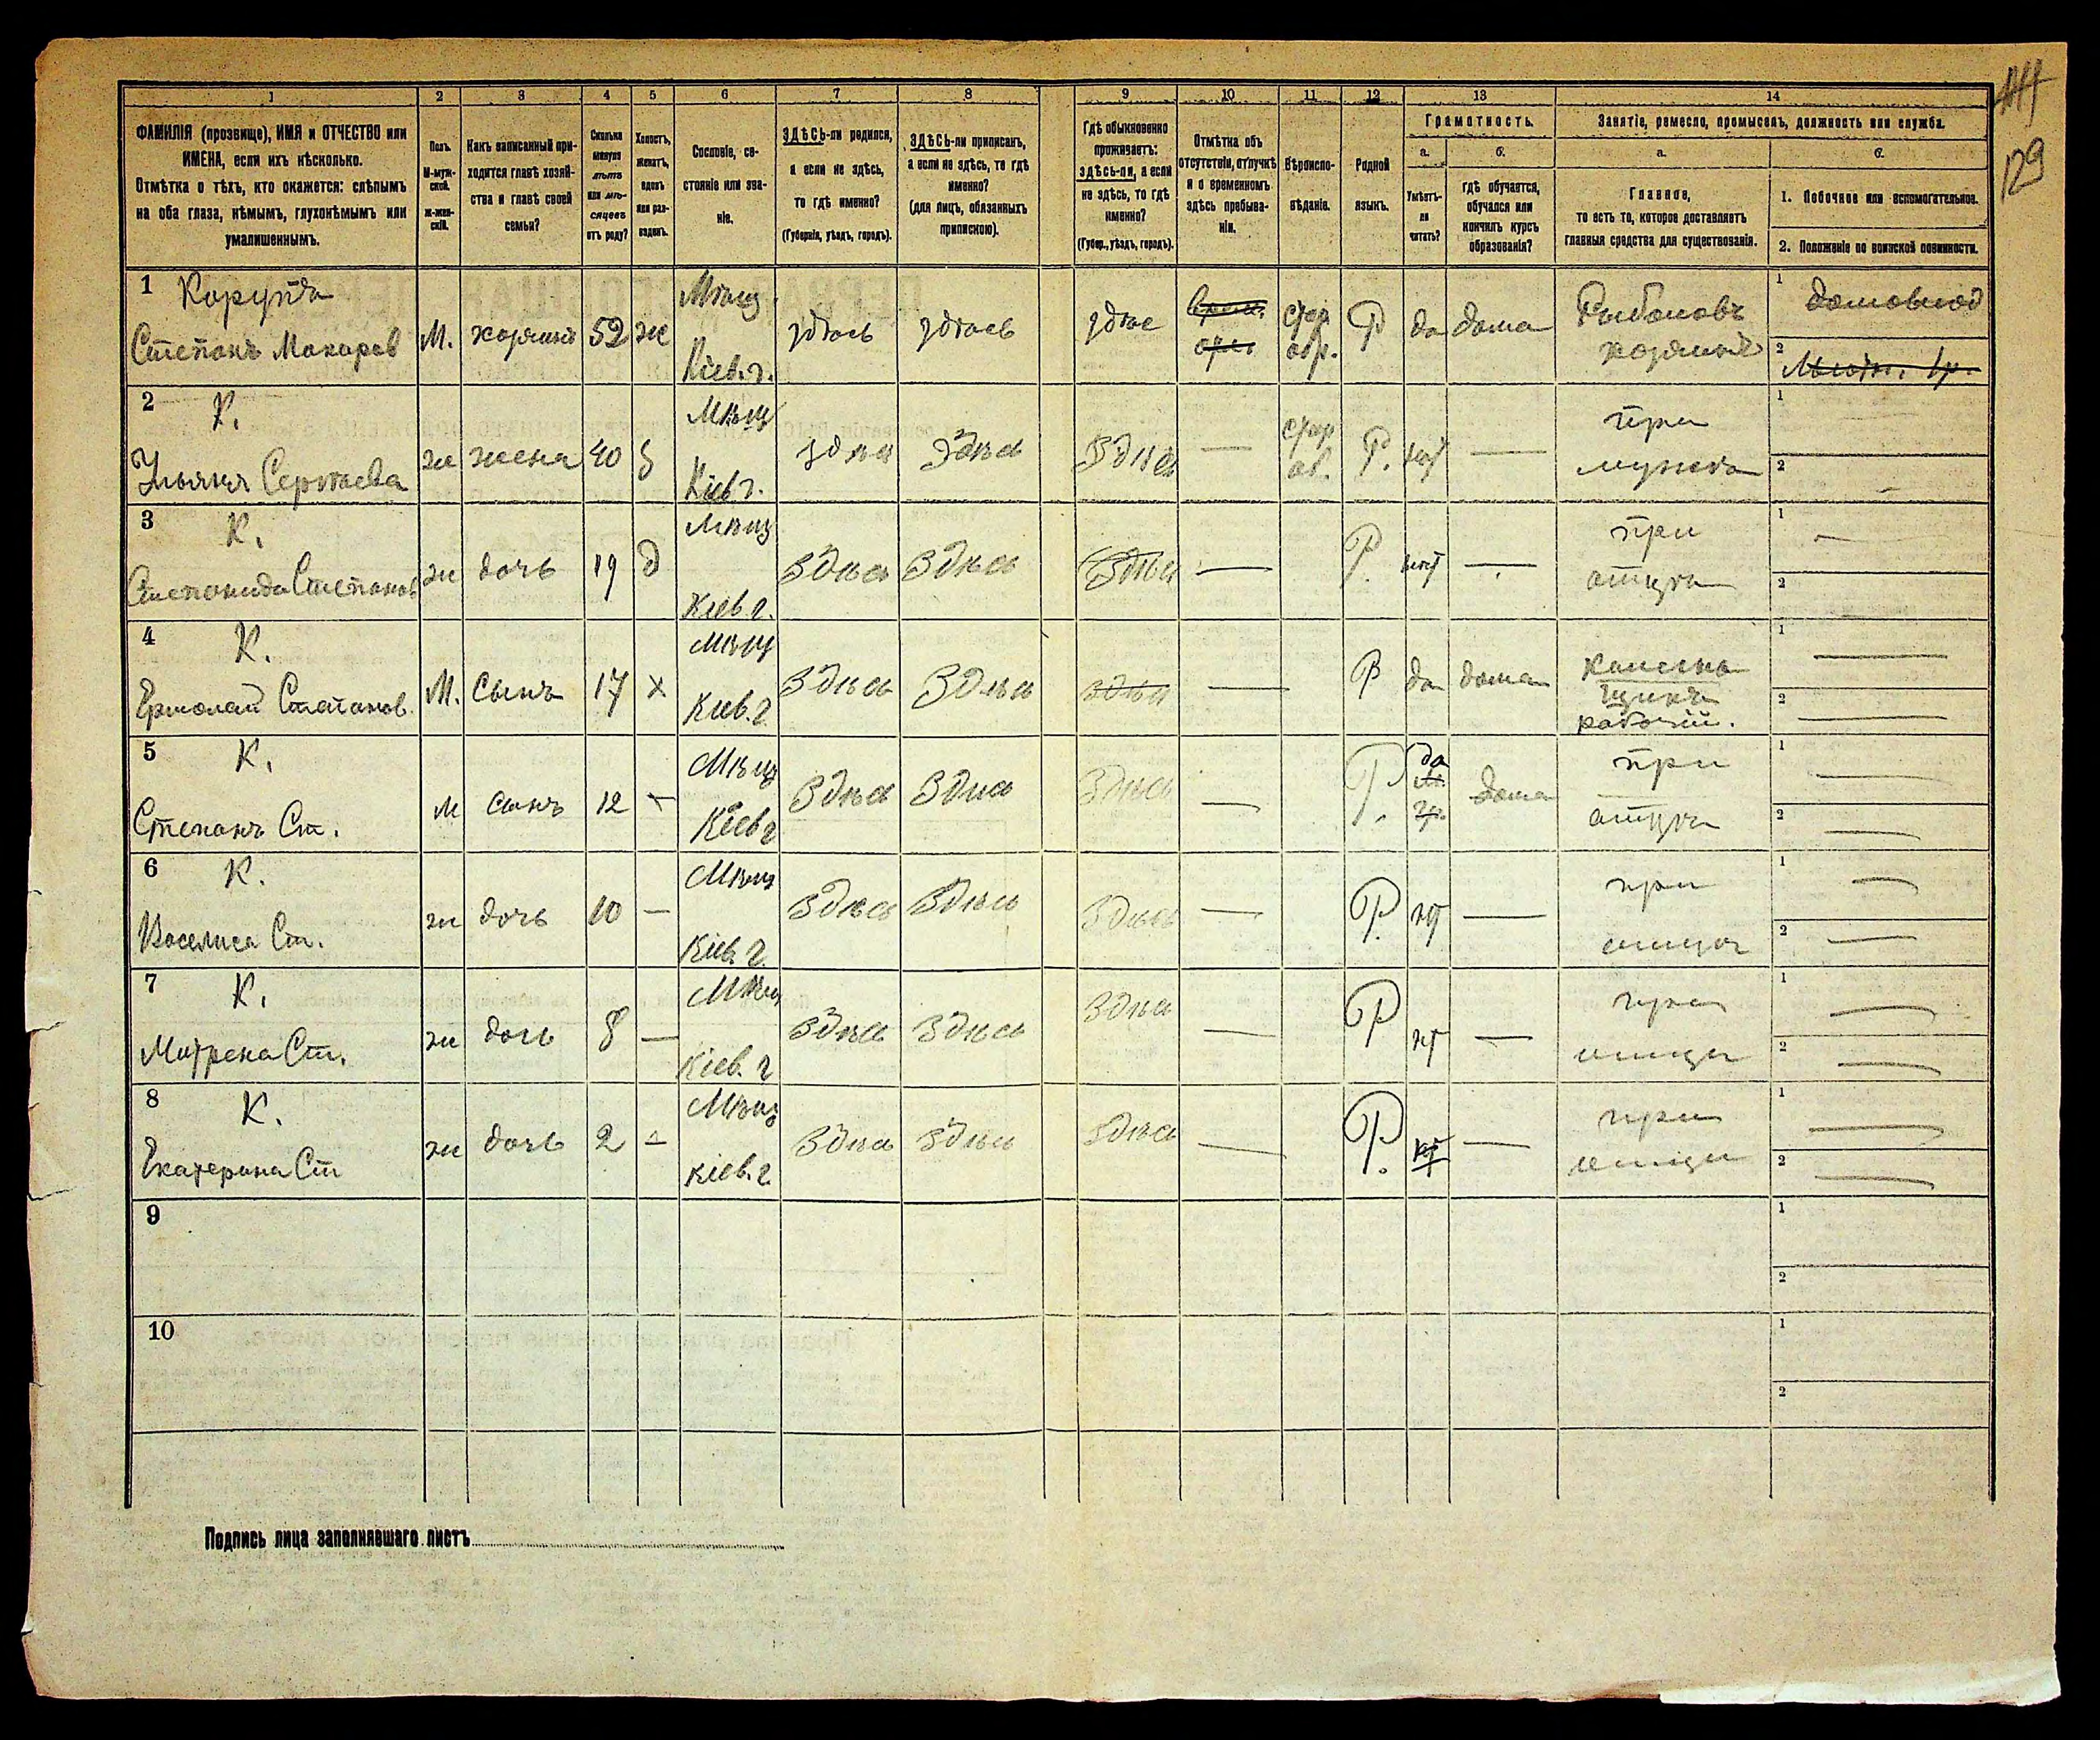 114
129
1 2 3 4 5 6 7 8 9 10 11 12 13 14
ФАМИЛІЯ (прозвище), ИМЯ и ОТЧЕСТВО или
ИМЕНА, если ихъ нѣсколько.
Отмѣтка о тѣхъ, кто окажется: слѣпымъ
на оба глаза, нѣмымъ, глухонѣмымъ или
умалишеннымъ.
Полъ.
М-муж-
ской.
Ж-жен-
скій.
Какъ записанный при-
ходится главѣ хозяй-
ства и главѣ своей
семьи?
Сколько
минуло
лѣтъ
или мѣ-
сяцевъ
отъ роду?
Холостъ,
женатъ,
вдовъ
или раз-
веденъ.
Сословіе, со-
стояніе или зва-
ніе.
ЗДѢСЬ-ли родился,
а если не здѣсь,
то гдѣ именно?
(Губернія, уѣздъ, городъ).
ЗДѢСЬ-ли приписанъ,
а если не здѣсь, то гдѣ
именно?
(для лицъ, обязанныхъ
припиской).
Гдѣ обыкновенно
проживаетъ:
здѣсь-ли, а если
не здѣсь, то гдѣ
именно?
(Губер., уѣздъ, городъ).
Отмѣтка объ
отсутствіи, отлучкѣ
и о временномъ
здѣсь пребыва-
ніи.
Вѣроиспо-
вѣданіе.
Родной
языкъ.
Грамотность.
а.
Умѣетъ-
ли
читать?
б.
гдѣ обучается,
обучался или
кончилъ курсъ
образованія?
Занятіе, ремесло, промыселъ, должность или служба.
а.
Главное,
то есть то, которое доставляетъ
главныя средства для существованія.
б.
1. Побочное или вспомогательное.
2. Положеніе по воинской повинности.
1 Корунда
Степанъ Макаров М. хозяинъ 52 же Мѣщ. Кіев. г. здѣсь здѣсь здѣс
стар. обр. Р да дома Рыболовъ хозяинъ
1 домовлад
2
2 К.
Ульяна Сергѣева же жена 40 з Мѣщ Кіев г. здѣсь здѣсь здѣсь — стар об. Р. нѣт — при мужѣ
1
2
3 К.
Степанида Степанов же дочь 19 д Мѣщ Кіев г. здѣсь здѣсь здѣсь — Р. нѣт — при отцѣ
1 —
2
4 К.
Ермолай Степанов. М. сынъ 17 х Мѣщ Кіев. г. здѣсь здѣсь здѣсь — Р да дома каменьщикъ рабочій.
1 —
2 —
5 К.
Степанъ Ст. м сынъ 12 — Мѣщ Кіев г здѣсь здѣсь здѣсь — Р. да дома при отцѣ
1 —
2 —
6 К.
Василиса Ст. же дочь 10 — Мѣщ Кіев. г. здѣсь здѣсь здѣсь — Р. нт — при отцѣ
1 —
2 —
7 К.
Матрена Ст. же дочь 8 — Мѣщ Кіев. г здѣсь здѣсь здѣсь — Р нт — при отцѣ
1 —
2 —
8 К.
Екатерина Ст же дочь 2 — Мѣщ Кіев. г. здѣсь здѣсь здѣсь — Р. нт — при отцѣ
1 —
2 —
9
1
2
10
1
2
Подпись лица заполнявшаго листъ